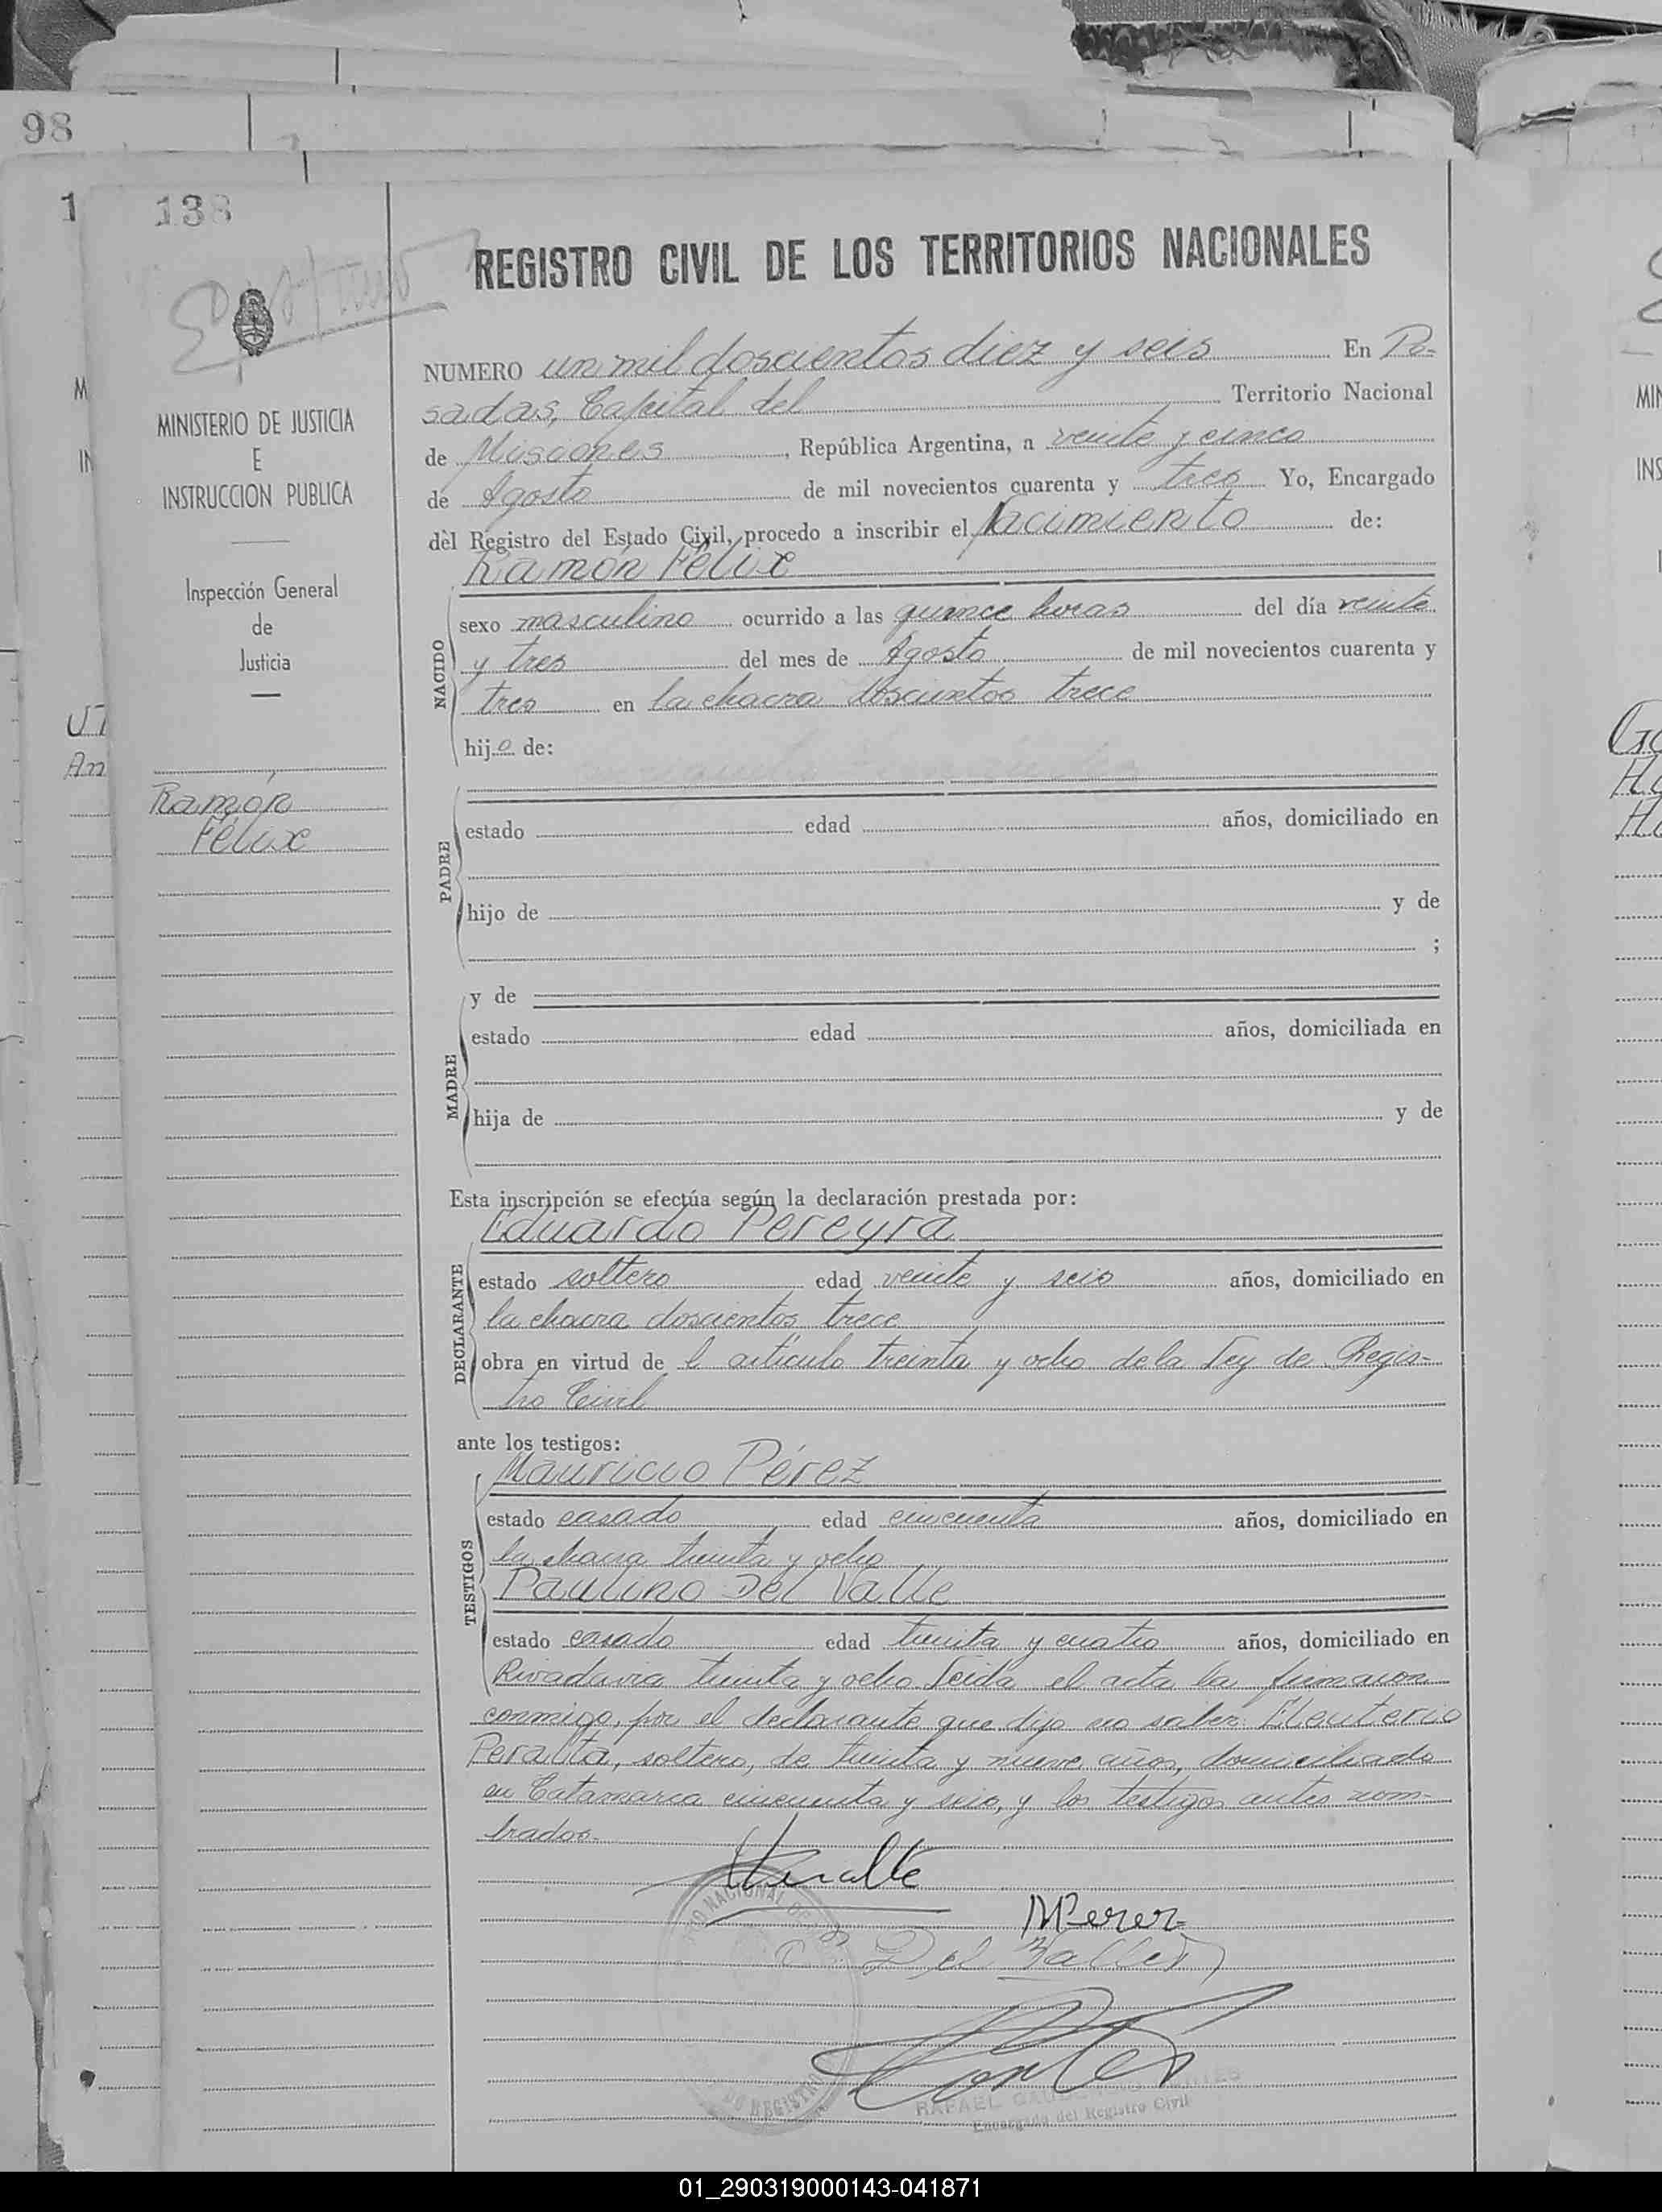 98
1
138
REGISTRO CIVIL DE LOS TERRITORIOS NACIONALES
MINISTERIO DE JUSTICIA
E
INSTRUCCION PUBLICA
Inspección General
de
Justicia
Ramón
Félix
NUMERO un mil doscientos diez y seis En Po-
sadas, Capital del Territorio Nacional
de Misiones, República Argentina, a veinte y cinco
de Agosto de mil novecientos cuarenta y tres Yo, Encargado
del Registro del Estado Civil, procedo a inscribir el Nacimiento de:
Ramón Félix
NACIDO
sexo masculino ocurrido a las quince horas del día veinte
y tres del mes de Agosto de mil novecientos cuarenta y
tres en la chacra doscientos trece
hijo de:
PADRE
estado edad años, domiciliado en
hijo de y de
;
y de
MADRE
estado edad años, domiciliada en
hija de y de
Esta inscripción se efectúa según la declaración prestada por:
Eduardo Pereyra
DECLARANTE
estado soltero edad veinte y seis años, domiciliado en
la chacra doscientos trece
obra en virtud de l artículo treinta y ocho de la Ley de Regis-
tro Civil
ante los testigos:
Mauricio Pérez
TESTIGOS
estado casado edad cincuenta años, domiciliado en
la chacra treinta y ocho
Paulino Del Valle
estado casado edad treinta y cuatro años, domiciliado en
Rivadavia treinta y ocho. Leída el acta la firmaron
conmigo, por el declarante que dijo no saber Eleuterio
Peralta, soltero, de treinta y nueve años, domiciliado
en Catamarca cincuenta y seis, y los testigos antes nom-
brados.
MPerez
P. Del Valle
RAFAEL
Encargado del Registro Civil
01_290319000143-041871